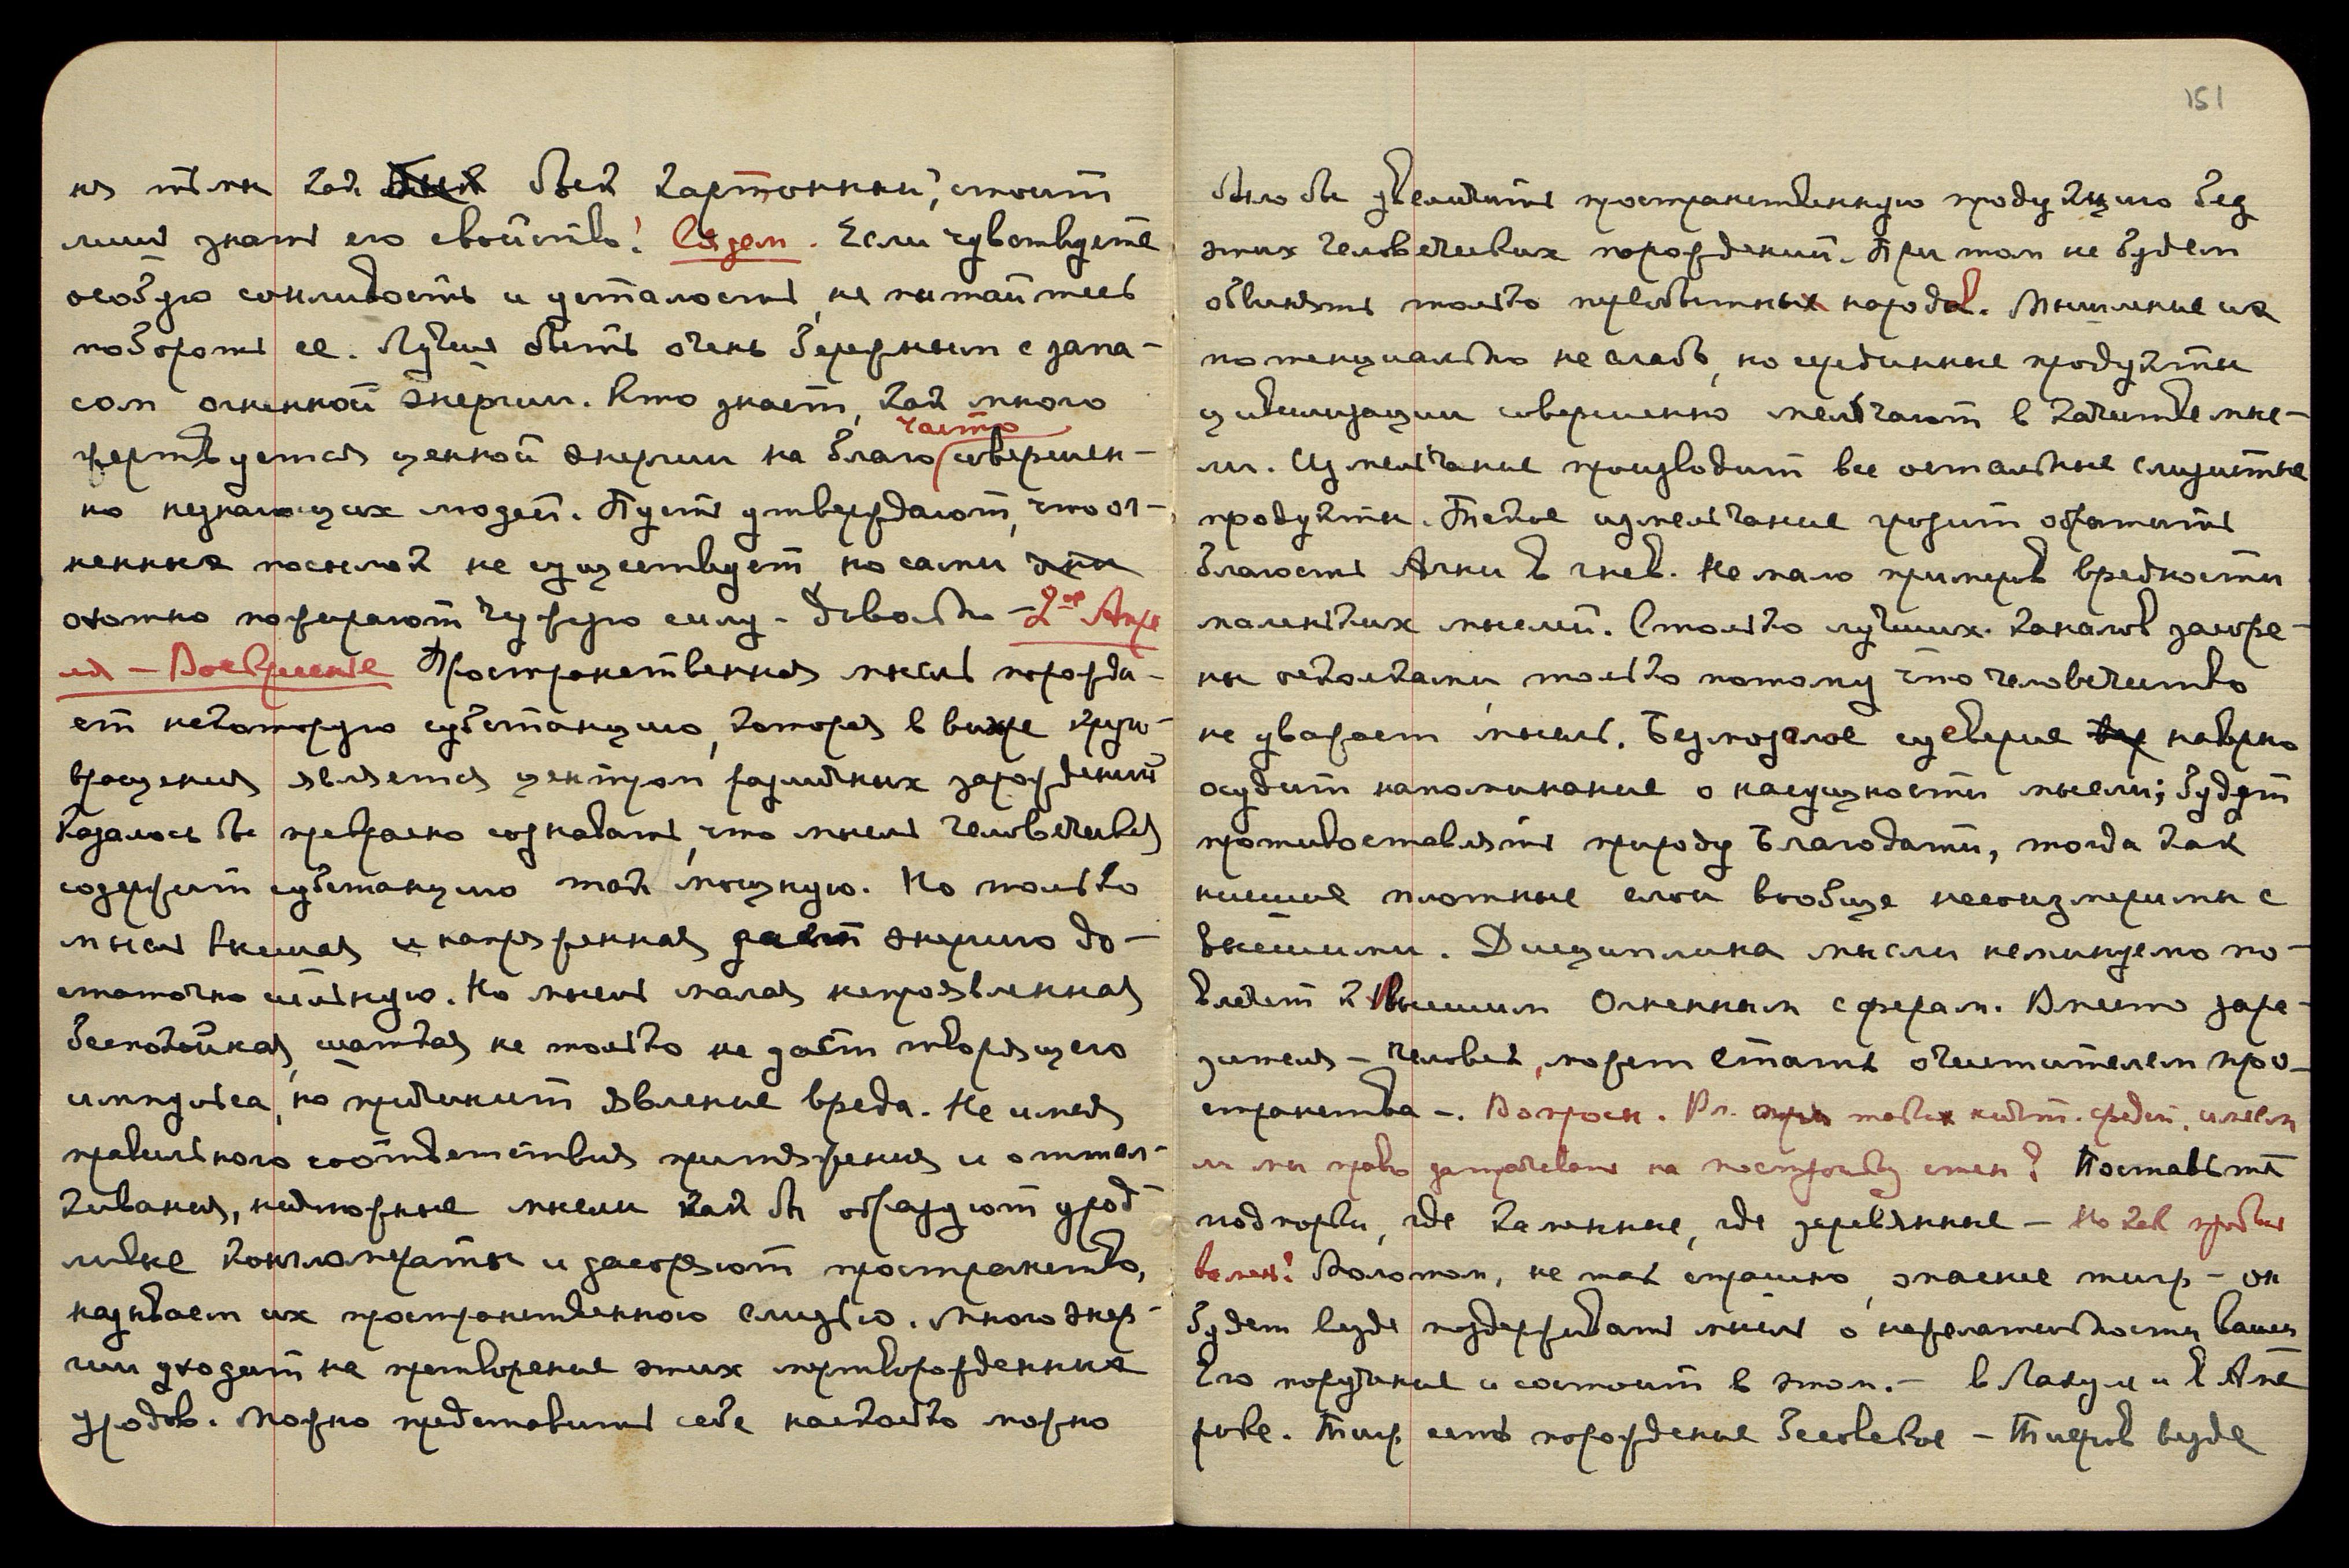 на тьмы как бык картонный, стоит
лишь знать его свойство! Сядем. Если чувствуете
особую сонливость и усталость, не пытайтесь
побороть ее. Лучше быть очень бережным с запа-
сом огненной энергии. Кто знает, как много
часто
жертвуется ценной энергии на благо совершен-
но незнающих людей. Пусть утверждают, что ог-
ненных посылок не существует но сами эти
охотно пожирают чужую силу. Довольно – 2-ое Апре
ля – Воскресенье Пространственная мысль порожда-
ет некоторую субстанцию, которая в вихре круго-
вращения является центром различных зарождений
Казалось бы прекрасно сознавать, что мысль человеческая
содержит субстанцию так мощную. Но только
мысль высшая и напряженная дает энергию до-
статочно сильную. Но мысль малая непроявленная
беспокойная, шаткая не только не даст творящего
импульса, но причинит явление вреда. Не имея
правильного соответствия притяжения и оттал-
кивания, ничтожные мысли как бы образуют урод-
ливые конгломераты и засоряют пространство,
называем их пространственною слизью. Много энер-
гии уходит на претворение этих мертворожденных
уродов. Можно представить себе насколько можно
151
было бы увеличить пространственную продукцию без
этих человеческих порождений. При том не будем
обвинять только первобытных народов. Мышление их
потенциально не слабо, но срединные продукты
цивилизации совершенно мельчают в качестве мыс-
ли. Измельчание производит все остальные слизистые
продукты. Такое измельчание грозит обратить
благость Агни в гнев. Не мало примеров вредности
маленьких мыслей. Столько лучших каналов засоре-
ны осколками, только потому что человечество
не уважает мысль. Безмозглое суеверие наверно
осудит напоминание о насущности мысли; будут
противоставлять природу Благодати, тогда как
низшие плотные слои вообще несоизмеримы с
высшими. Дисциплина мысли неминуемо по-
влечет к Высшим Огненным сферам. Вместо зара-
зителя – человек, может стать очистителем про-
странства –. Вопросы. Вл. при таких ничт. средст. имеем
ли мы право затрачивать на постройку стен? Поставьте
подпорки, где каменные, где деревянные – Но как
Молотом, не так страшно, опаснее тигр – он
будет везде поддерживать мысль о нежелательности ваше
Его поручение и состоит в этом. – в Лахуле и в Аме
рике. Тигр есть порождение бесовское – Тигров везде